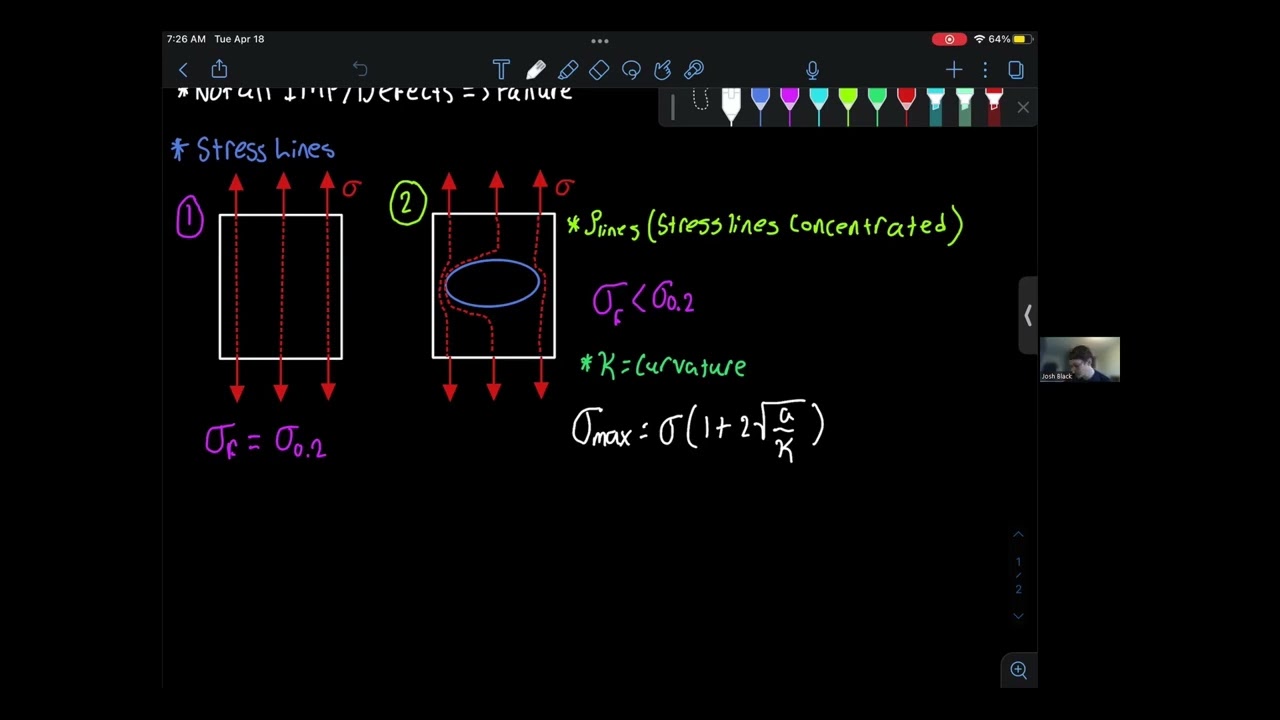 7:26 AM Tue Apr 18
64%
T
* Not all IMP/Defects = Failure
* Stress Lines
1
σ
2
σ
* ρlines (Stress lines Concentrated)
σf < σ0.2
* K = Curvature
σmax = σ(1 + 2√(a/K))
σf = σ0.2
1
/
2
Josh Black